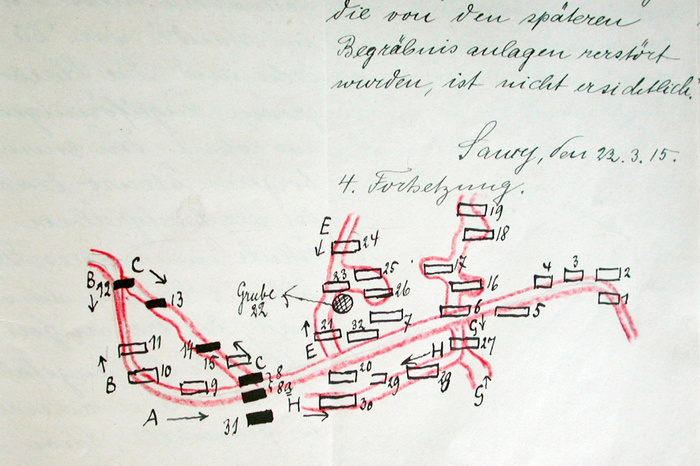 die von den späteren
Begräbnisanlagen zerstört
wurden, ist nicht ersichtlich.
Sawy, den 22.3.15.
4. Fortsetzung.
19
18
E
24
C
17
B
12
13
23
25
26
16
4
3
2
1
Grube
22
6
5
7
21
32
E
G
11
14
15
C
H
27
B
10
9
8
8a
20
29
28
G
A
31
H
30